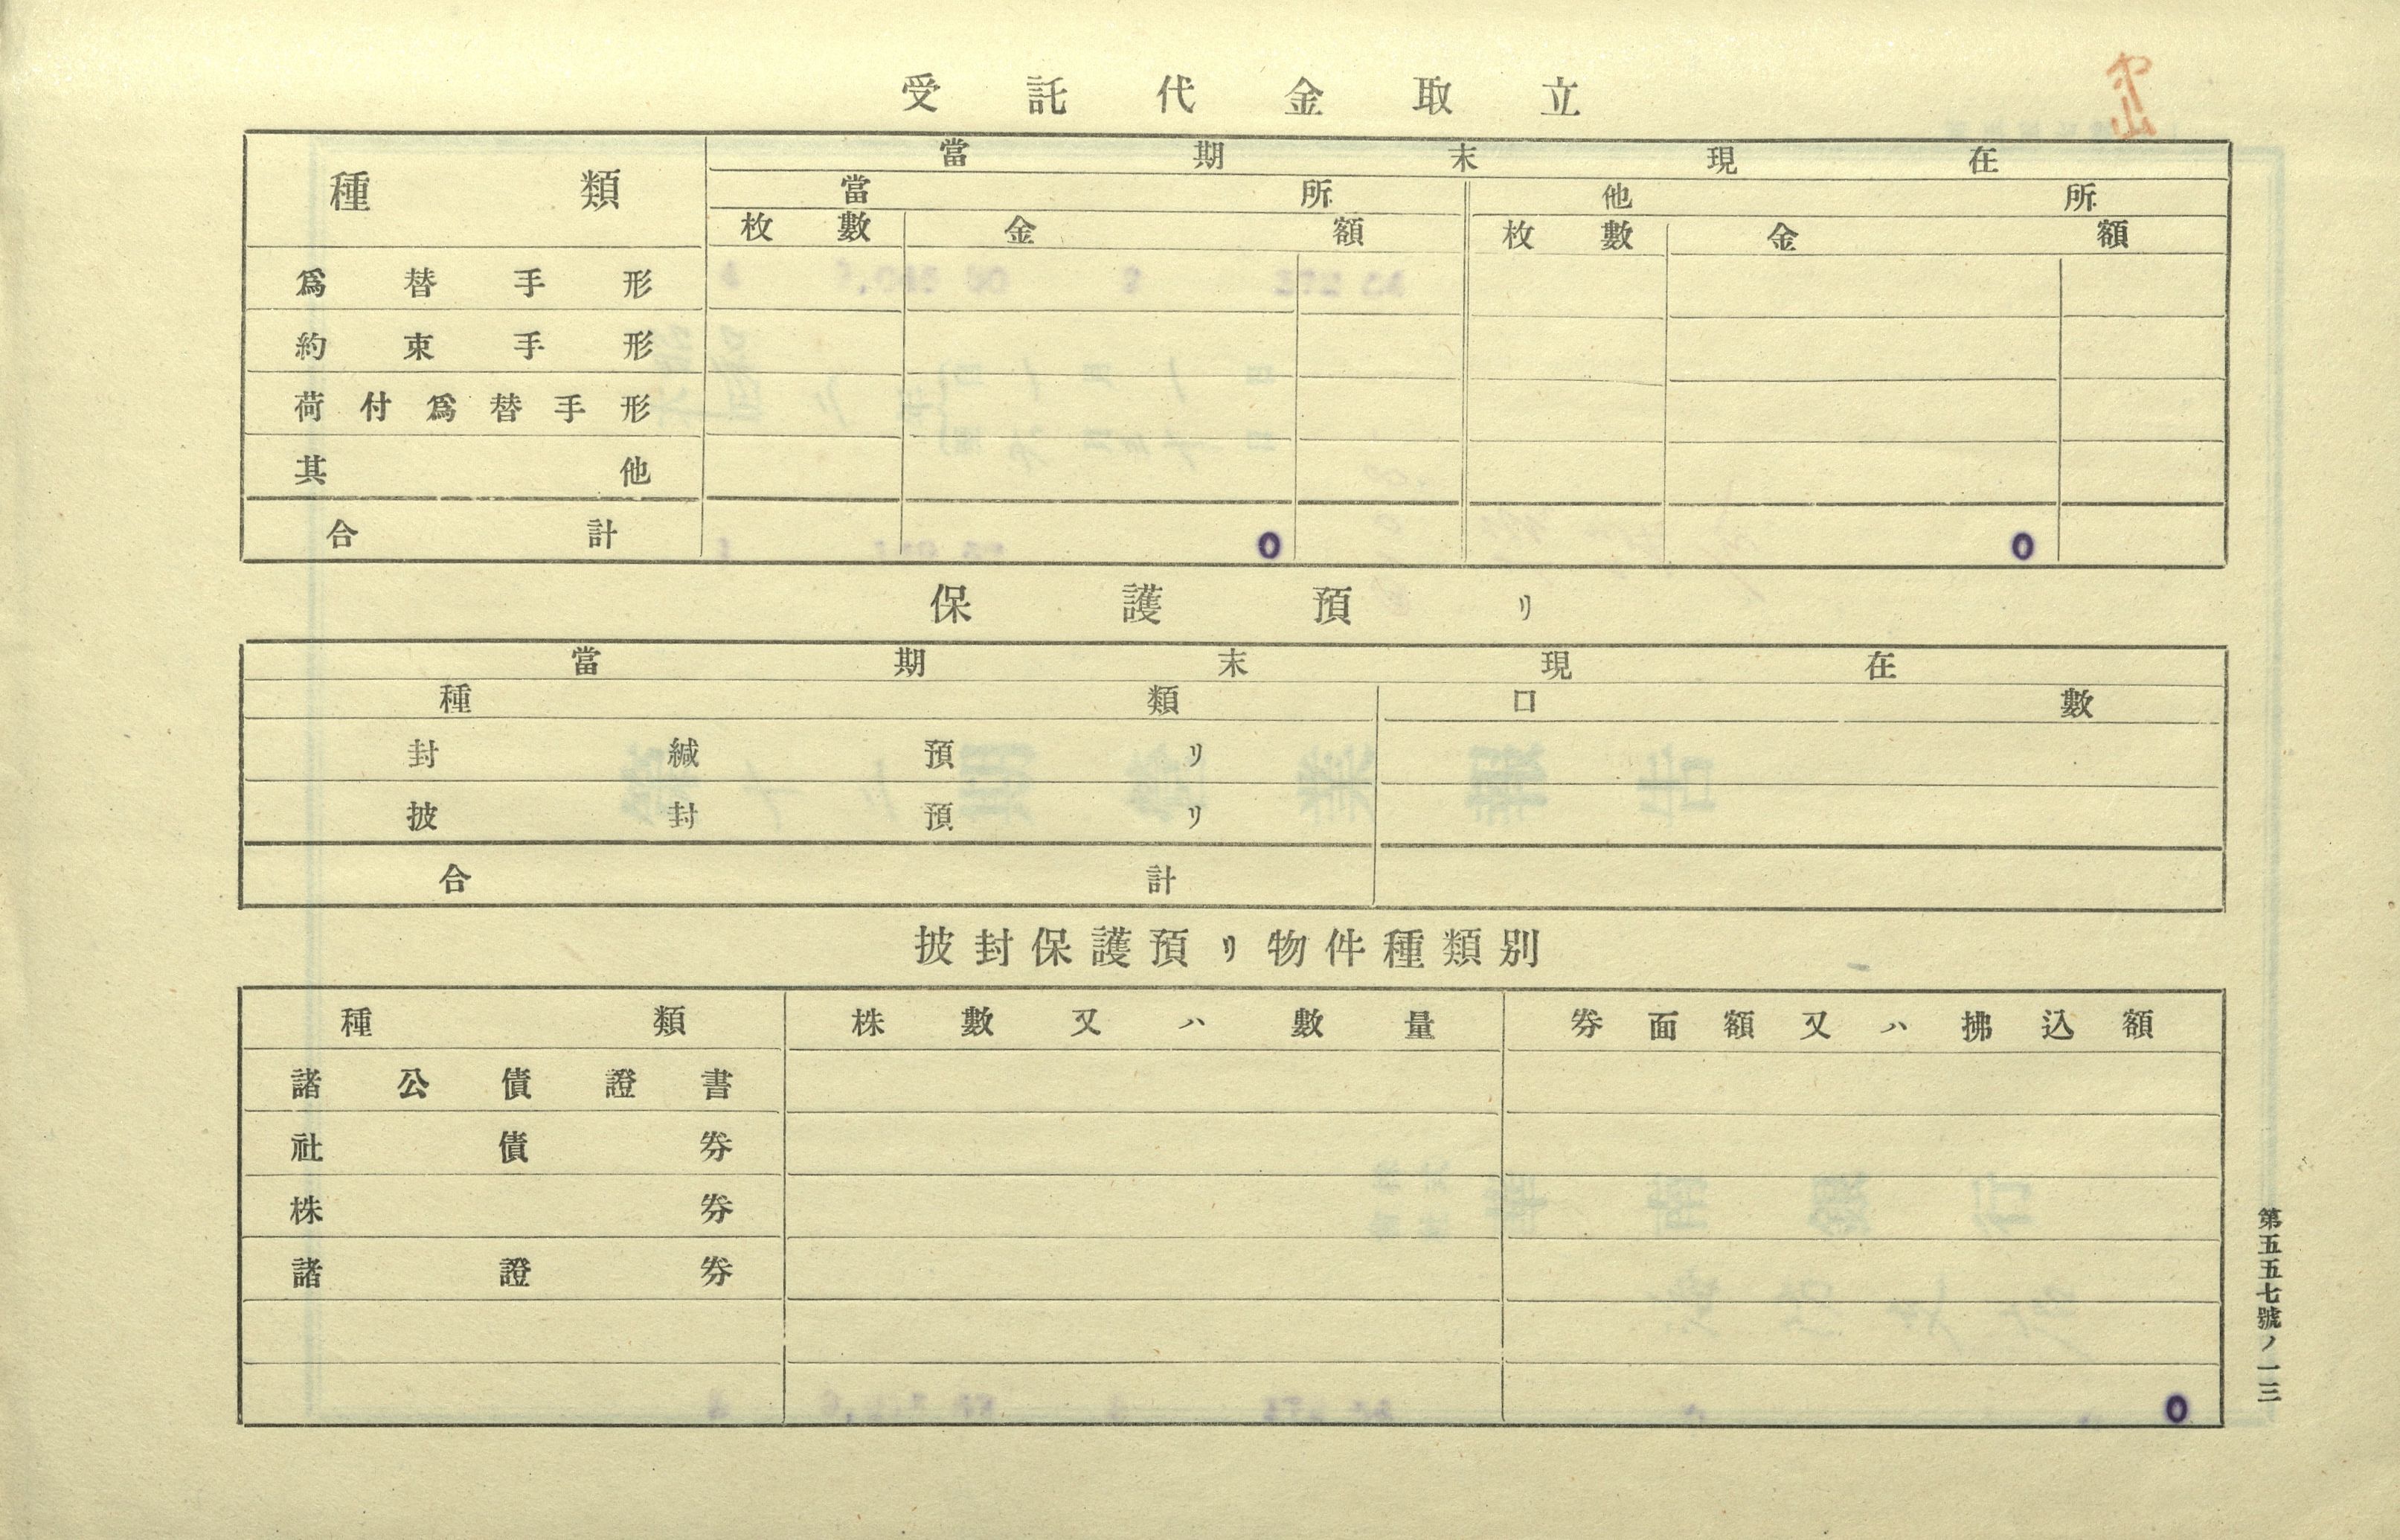 受託代金取立
種類 當期末現在
當所 他所
枚數 金額 枚數 金額
爲替手形
約束手形
荷付爲替手形
其他
合計 0 0
保護預リ
當期末現在
種類 口數
封緘預リ
披封預リ
合計
披封保護預リ物件種類別
種類 株數又ハ數量 券面額又ハ拂込額
諸公債證書
社債券
株券
諸證券
0
第五五七號ノ一三